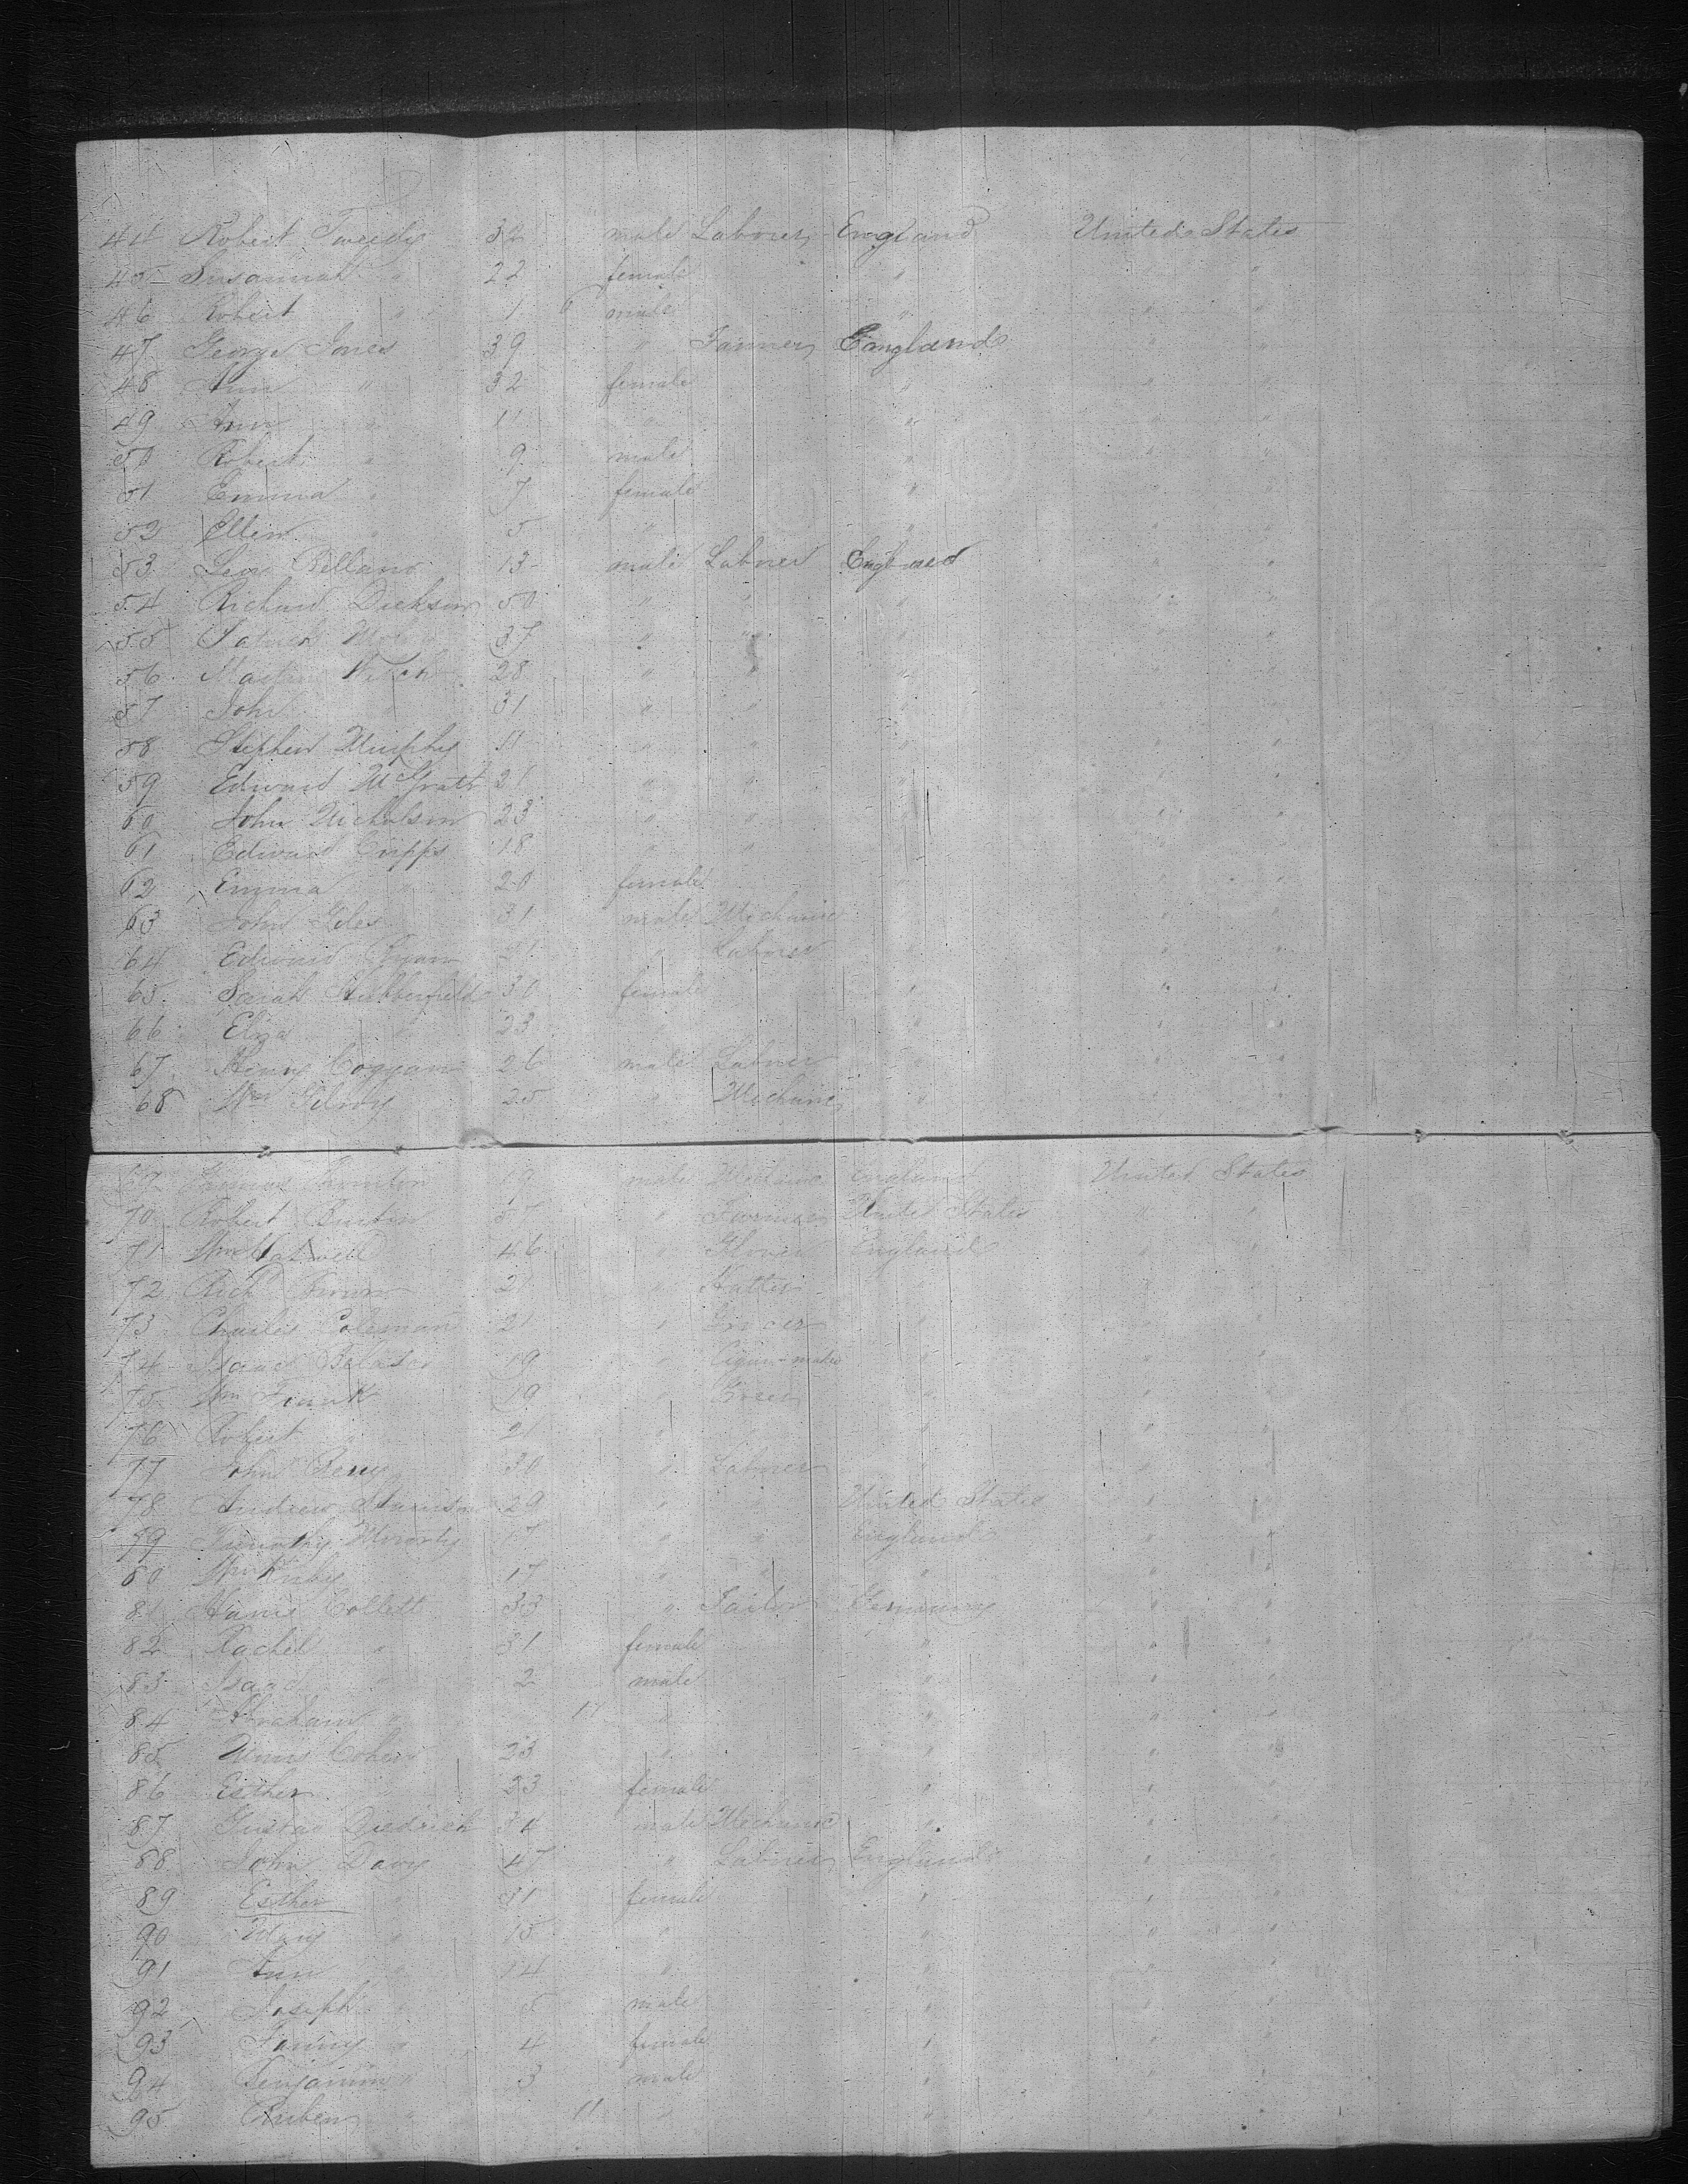 44 Robert Tweedy 32 male Laborer England United States
45 Susannah " 22 female " " "
46 Robert " 1 male " " "
47 George Jones 39 " Farmer England " "
48 Ann " 32 female " " "
49 Ann " 11 " " " "
50 Robert " 9 male " " "
51 Emma " 7 female " " "
52 Ellen " 5 " " " "
53 13 male Laborer England " "
54 Richard Dickson 50 " " " " "
55 Patrick 37 " " " " "
56 Martin 28 " " " " "
57 John " 31 " " " " "
58 Stephen Murphy " " " " "
59 Edward McGrath 21 " " " " "
60 John Nicholson 23 " " " " "
61 Edward Cripps 18 " " " " "
62 Emma " 20 female " " "
63 John Giles 31 male Mechanic " " "
64 Edward Ryan 21 " Laborer " " "
65 Sarah Stubberfield 30 female " " "
66 Eliza " 23 " " " "
67 Henry Coggan 26 male Laborer " " "
68 Wm Gilroy 25 " Mechanic " " "
69 Thornton 19 male Mechanic England United States
70 Robert Burton 57 " Farmer United States " "
71 Wm 46 " Glover England " "
72 Richd Brown 21 " Hatter " " "
73 Charles Coleman 21 " Grocer " " "
74 Isaac Belasco 19 " Cigar-maker " " "
75 Wm Frank 19 " " " "
76 Robert " 21 " " " "
77 John Berry 30 " Laborer " " "
78 Andrew 29 " " United States " "
79 Timothy 17 " " England " "
80 Wm Kirby 17 " " " " "
81 Collett 33 " Tailor Germany " "
82 Rachel " 31 female " " "
83 Isaac " 2 male " " "
84 Abraham " 11 " " " "
85 Cohen 23 " " " "
86 Esther " 23 female " " "
87 Gustav Diedrich 34 male Mechanic " " "
88 John Davy 47 " Laborer England " "
89 Esther " 31 female " " "
90 Mary " 15 " " " "
91 Ann " 14 " " " "
92 Joseph " 5 male " " "
93 Fanny " 4 female " " "
94 Benjamin " 3 male " " "
95 Ruben " 11 " " " "